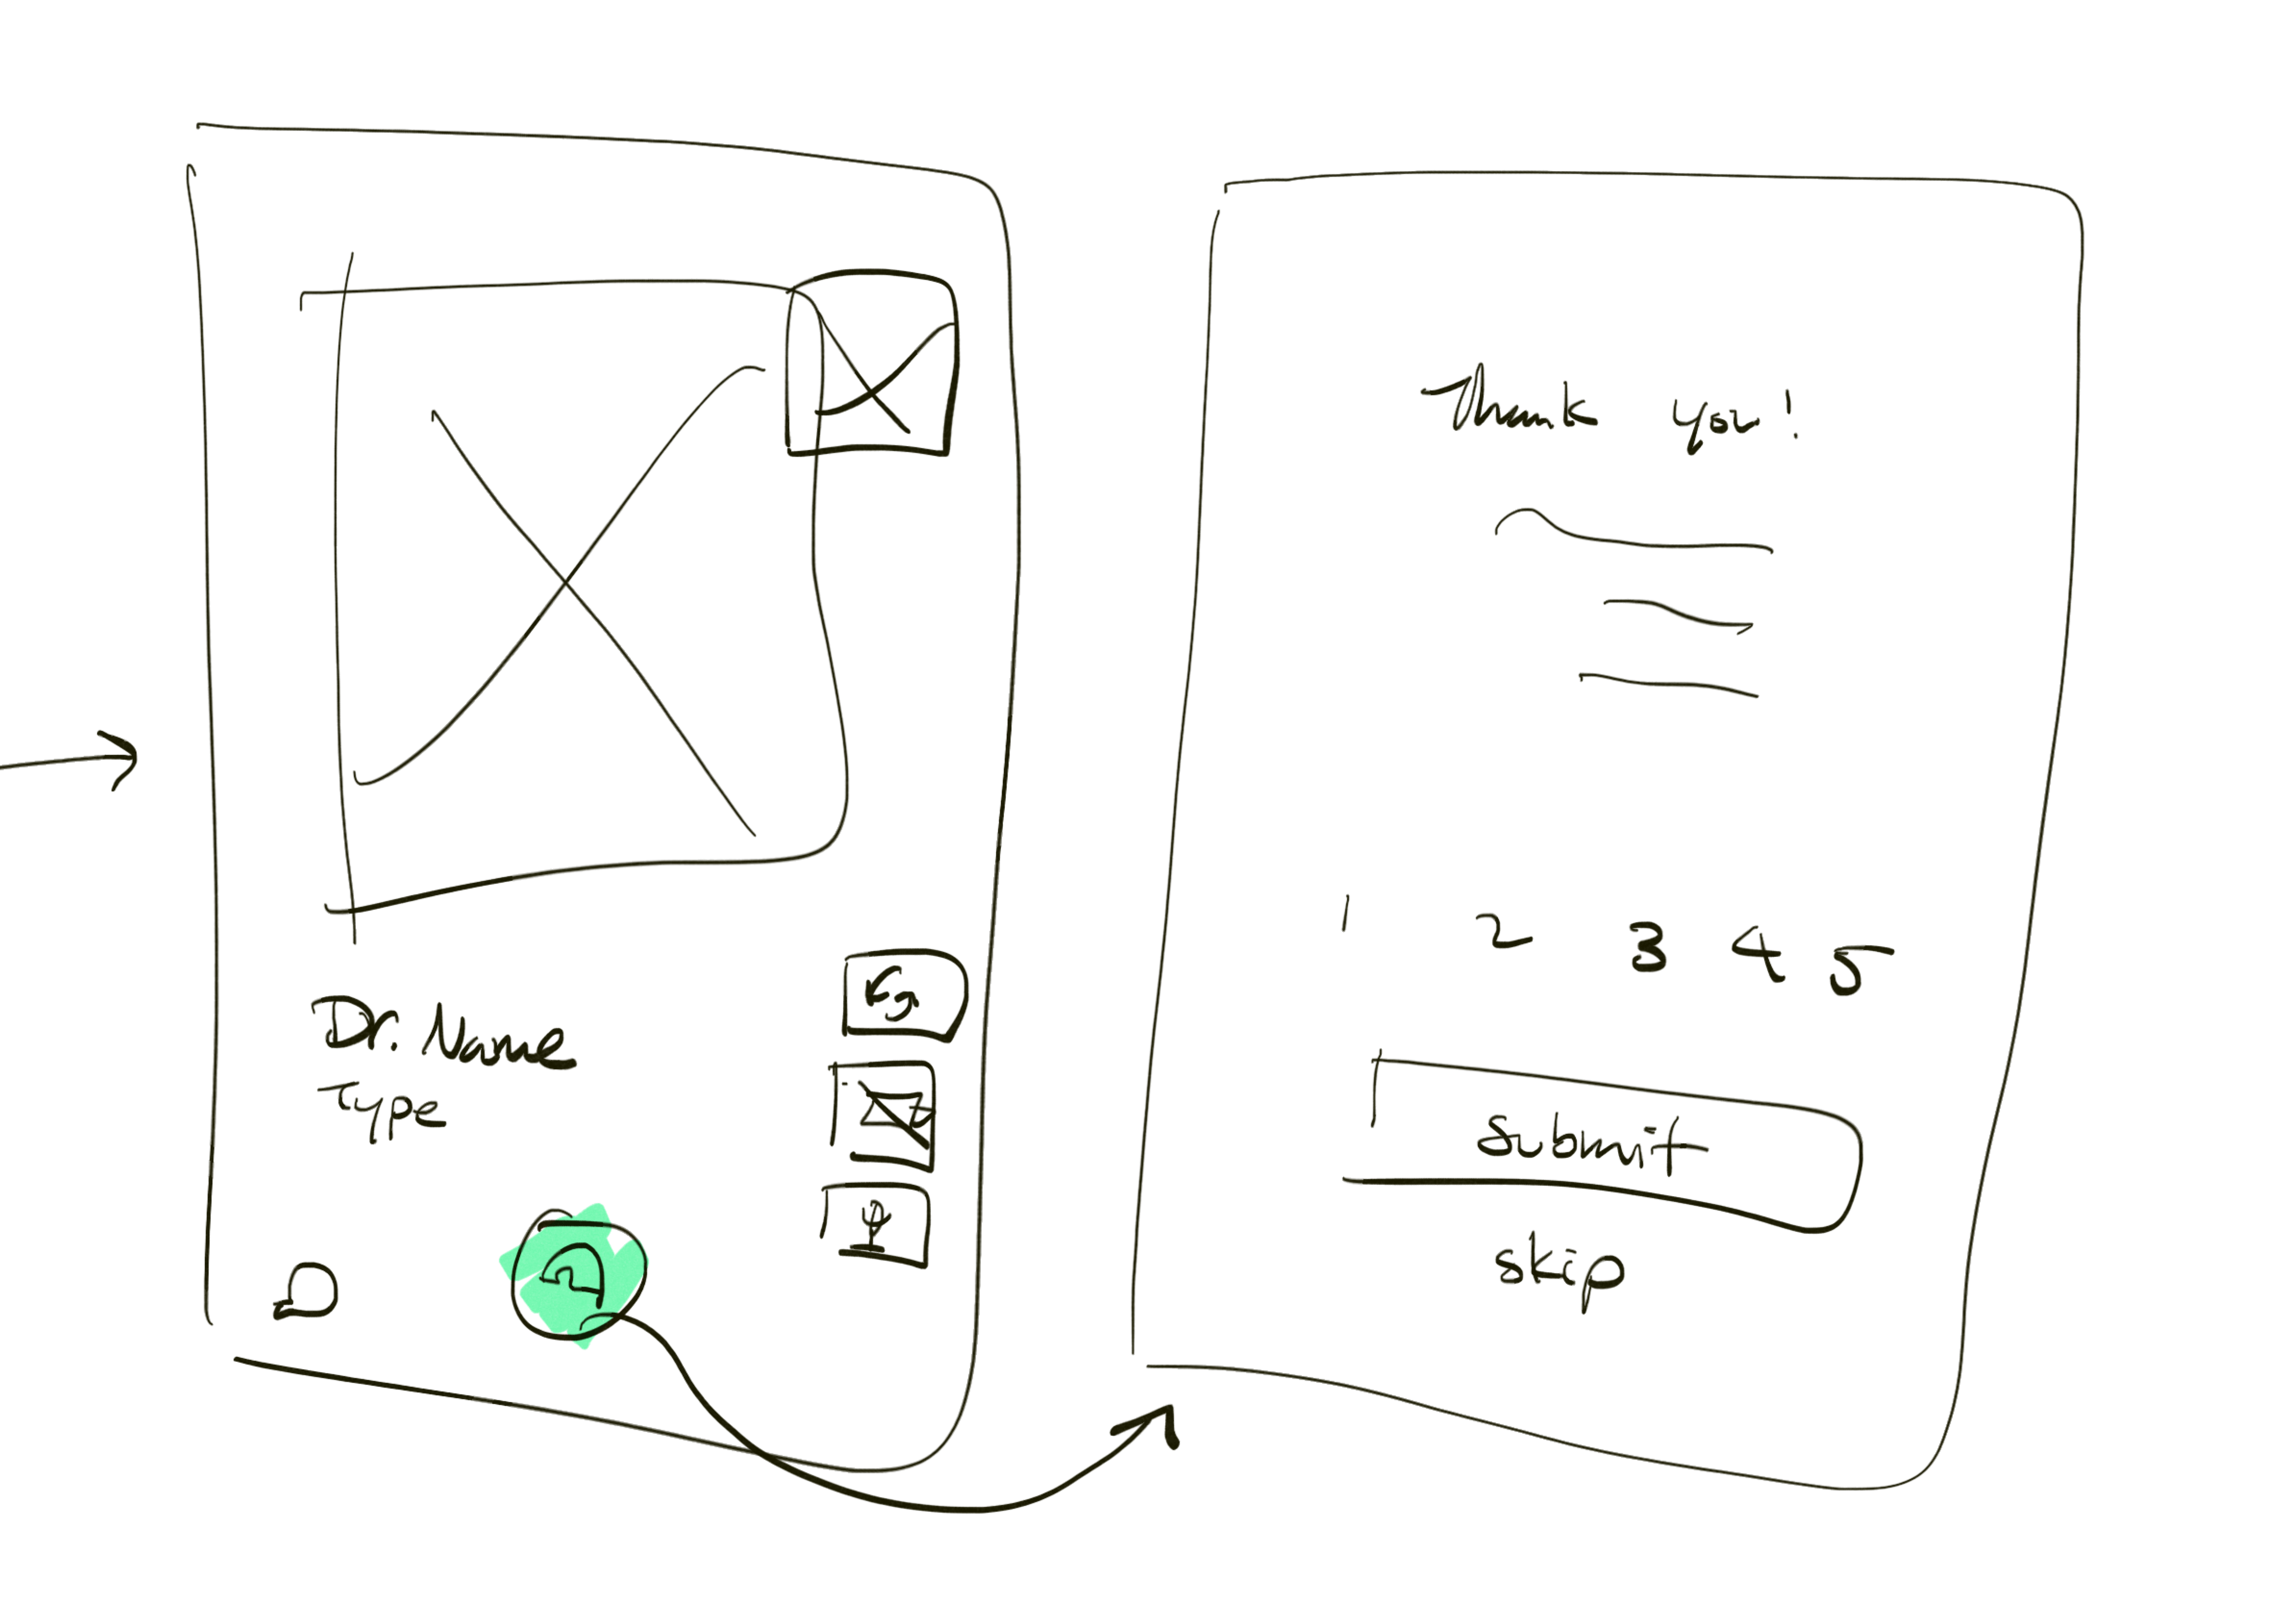 Dr. Name
Type
Thank you!
1 2 3 4 5
Submit
skip